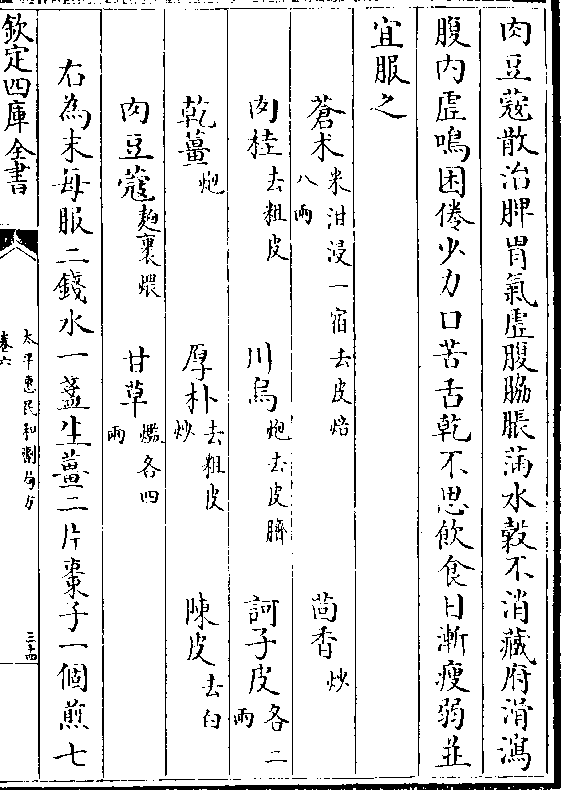 肉豆蔻散治脾胃氣虛腹脇脹滿水榖不消藏府滑瀉
腹内虛鳴困倦少力口苦舌乾不思飲食日漸瘦弱並
宜服之
蒼朮米泔浸一宿去皮焙八兩 茴香炒
肉桂去粗皮 川烏炮去皮臍 訶子皮各二兩
乾薑炮 厚朴去粗皮炒 陳皮去白
肉豆蔻麵裹煨 甘草爁各四兩
右為末每服二錢水一盞生薑二片棗子一個煎七
欽定四庫全書
太平惠民和劑局方
卷六
三十四